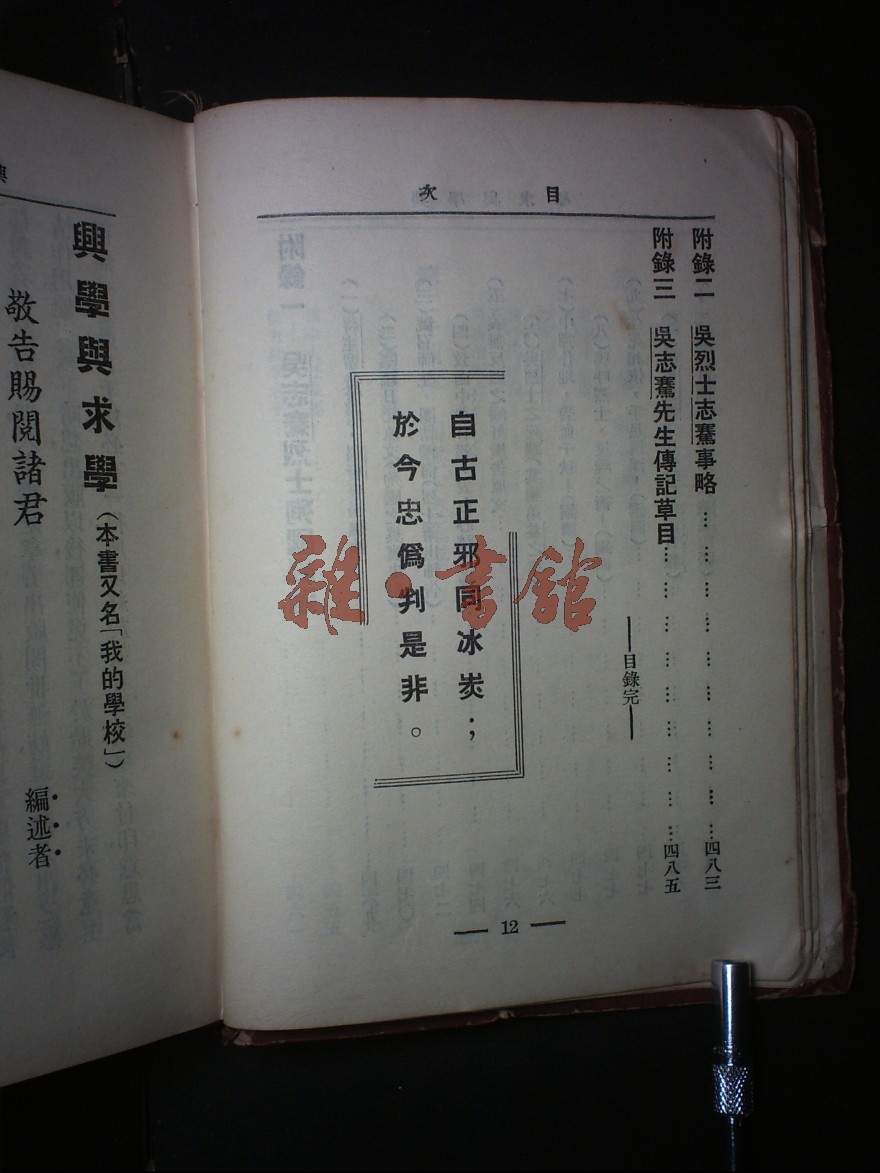 目次
附錄二 吳烈士志騫事略………………………………四八三
附錄三 吳志騫先生傳記草目………………………四八五
——目錄完——
自古正邪同冰炭；
於今忠僞判是非。
— 12 —
雜·書館
興學與求學（本書又名「我的學校」）
敬告賜閱諸君
編述者